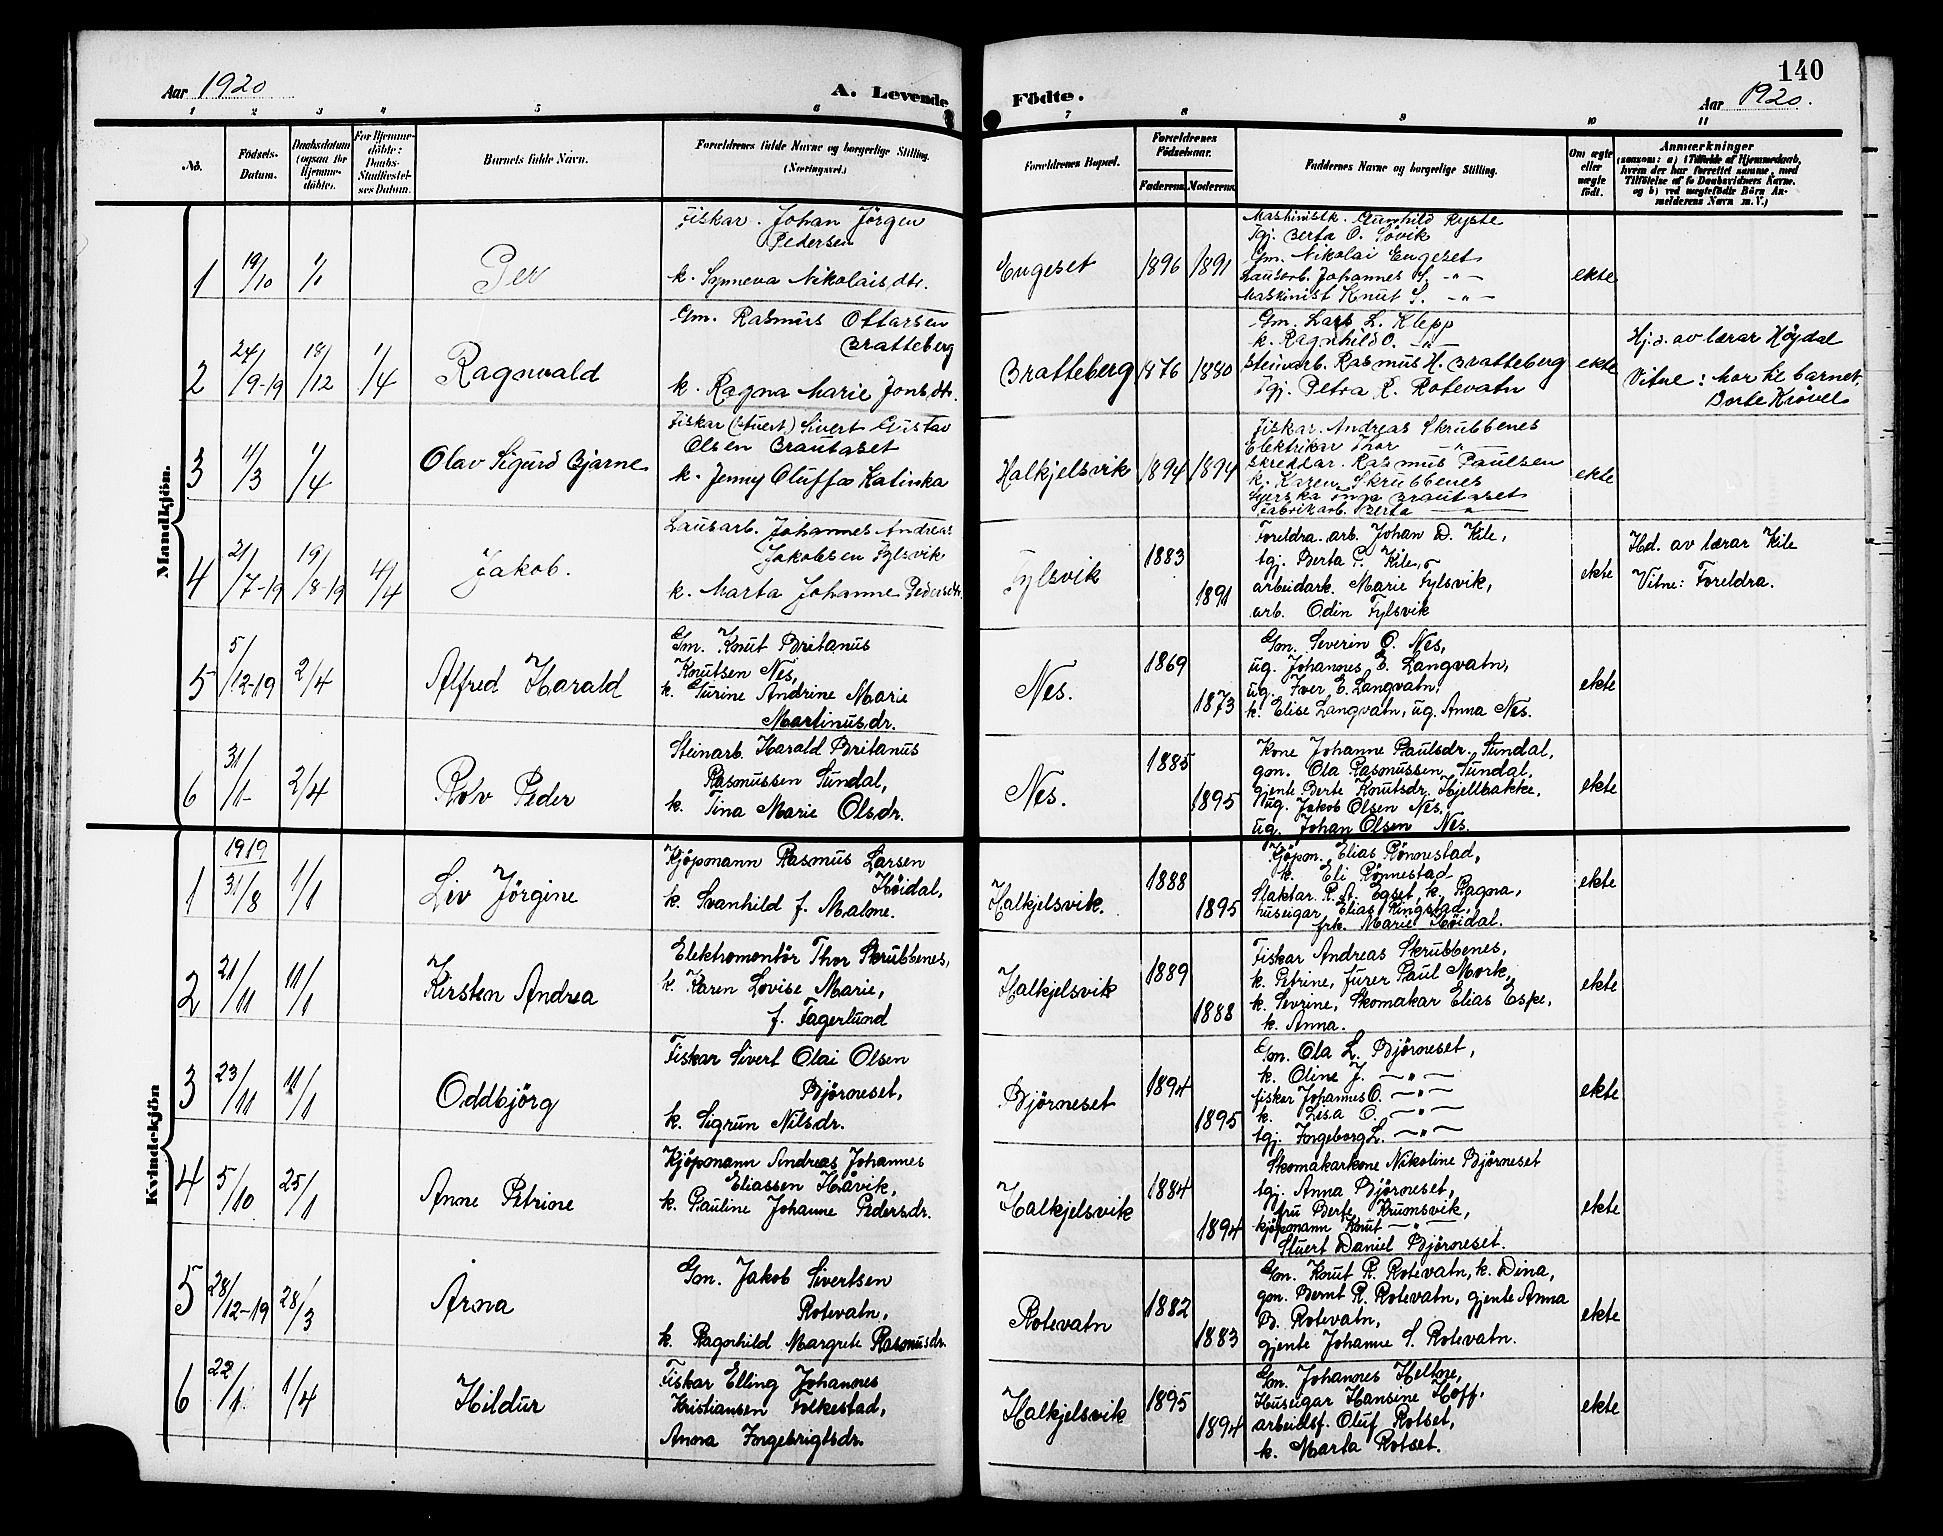 140
Aar 1920
A. Levende Födte.
Aar 1920.
1 2 3 4 5 6 7 8 9 10 11
No.
Födsels-Datum.
Daabsdatum (ogsaa for Hjemme-döbte).
For Hjemme-döbte: Daabs-Stadfæstel-ses Datum.
Barnets fulde Navn.
Forældrenes fulde Navne og borgerlige Stilling.
(Næringsvei.)
Forældrenes Bopæl.
Forældrenes Födselsaar.
Faderens. Moderens.
Faddernes Navne og borgerlige Stilling.
Om ægte eller uægte födt.
Anmærkninger
(saasom: a) i Tilfælde af Hjemmedaab, hvem der har forrettet samme, med Tilföielse af to Daabsvidners Navne. og b) ved uægtefödte Börn An-melderens Navn m. V.)
Mandkjön.
1
19/10
1/1
Per
Fiskar. Johan Jörgen
Pedersen
k. Synneva Nikolaisdtr.
Engeset
1896
1891
Maskinistk. Gunhild Ryste
Tgj. Berta O. Sövik
Gm. Nikolai Engeset
Lausarb. Johannes S. -"-
Maskinist Knut S. -"-
ekte
2
24/9-19
18/12
1/4
Ragnvald
Gm. Rasmus Ottarsen
Bratteberg
k. Ragna Marie Jonsdtr.
Bratteberg
1876
1880
Gm. Lars L. Klepp
k. Ragnhild O. -"-
Steinarb. Rasmus H. Bratteberg
Tgj. Petra R. Rotevatn
ekte
Hj.d. av lærar Höydal
Vitne: Mor til barnet,
Berte Krøvel
3
11/3
1/4
Olav Sigurd Bjarne
Fiskar (stuert) Sivert Gustav
Olsen Brautaset
k. Jenny Oluffa Katinka
Halkjelsvik
1894
1894
Fiskar. Andreas Skrubbenes
Elektrikar Thor -"-
Skreddar. Rasmus Paulsen
k. Karen Skrubbenes
Syerska Inga Brautaset
Fabrikarb. Berta -"-
ekte
4
21/7-19
19/8-19
4/4
Jakob.
Lausarb. Johannes Andreas
Jakobsen Fylsvik
k. Marta Johanne Pedersdtr.
Fylsvik
1883
1891
Foreldra. arb. Johan D. Kile,
tgj. Berta P. Kile,
arbeidark. Marie Fylsvik,
arb. Odin Fylsvik
ekte
Hd. av lærar Kile
Vitne: Foreldra.
5
5/12-19
2/4
Alfred Harald
Gm. Knut Britanus
Knutsen Nes,
k. Turine Andrine Marie
Martinusdr.
Nes.
1869
1873
Gm. Severin O. Nes,
ug. Johannes E. Langvatn,
ug. Iver E. Langvatn,
k. Elise Langvatn, ug. Anna Nes.
ekte
6
31/1-
2/4
Rolv Peder
Steinarb. Harald Britanus
Rasmussen Sundal,
k. Tina Marie Olsdr.
Nes.
1885
1895
Kone Johanne Paulsdr. Sundal,
gm. Ola Rasmussen Sundal,
gjente Berte Knutsdr. Hjellbakke,
ug. Jakob Olsen Nes,
ug. Johan Olsen Nes.
ekte
Kvindekjön
1
1919
31/8
1/1
Liv Jörgine
Kjöpmann Rasmus Larsen
Höidal,
k. Svanhild f. Malone.
Halkjelsvik.
1888
1895
Kjöpm. Elias Rönnestad,
k. Eli Rönnestad
Slaktar R. A. Egset, k. Ragna,
huseigar Elias Ringstad,
frk. Marie Höidal.
ekte
2
21/11
11/1
Kirsten Andrea
Elektromontör Thor Skrubbenes,
k. Karen Lovise Marie,
f. Fagerlund
Halkjelsvik
1889
1888
Fiskar Andreas Skrubbenes,
k. Petrine, furer Paul Mork,
k. Sevrine, Skomakar Elias Espe,
k. Anna.
ekte
3
23/11
11/1
Oddbjörg
Fiskar Sivert Olai Olsen
Björneset,
k. Sigrun Nilsdr.
Björneset
1894
1895
Gm. Ola L. Björneset,
k. Oline J. -"-
fiskar Johannes O. -"-
k. Lisa O. -"-
tgj. Ingeborg L. -"-
ekte
4
5/10
25/1
Anne Petrine
Kjöpmann Andreas Johannes
Eliassen Håvik,
k. Pauline Johanne Pedersdr.
Halkjelsvik
1884
1894
Skomakarkone Nikoline Björneset
tgj. Anna Björneset,
fru Berte Krumsvik,
kjöpmann Knut -"-
Stuert Daniel Björneset.
ekte
5
28/12-19
28/3
Arna
Gm. Jakob Sivertsen
Rotevatn,
k. Ragnhild Margrete Rasmusdr.
Rotevatn
1882
1883
Gm. Knut R. Rotevatn, k. Dina,
gm. Bernt R. Rotevatn, gjente Anna
B. Rotevatn,
gjente Johanne S. Rotevatn.
ekte
6
22/1
1/4
Hildur
Fiskar Elling Johannes
Kristiansen Folkestad,
Anna Ingebrigtsdr.
Halkjelsvik
1895
1894
Gm. Johannes Heltne,
Huseigar Hansine Hoff,
arbeidsf. Oluf Rotset,
k. Marta Rotset.
ekte